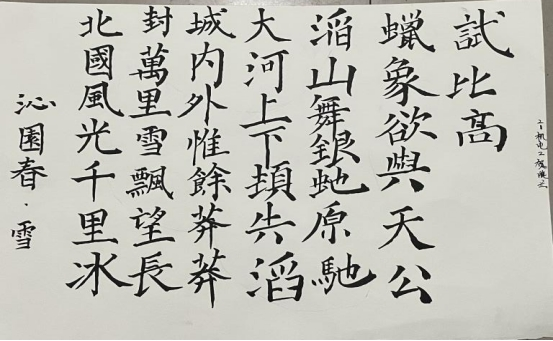 沁園春·雪
北國風光千里冰
封萬里雪飄望長
城内外惟餘莽莽
大河上下頓失滔
滔山舞銀虵原馳
蠟象欲與天公
試比高